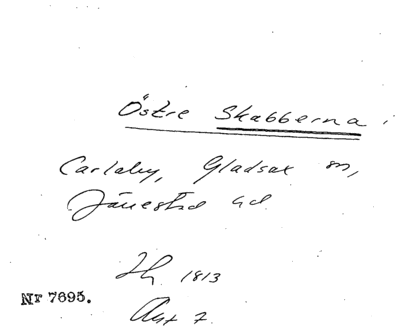 Östre Skabberna,
Carlaby, Gladsax sn,
Järrestad hd.
Ih. 1813
Nr 7695.
Akt 7